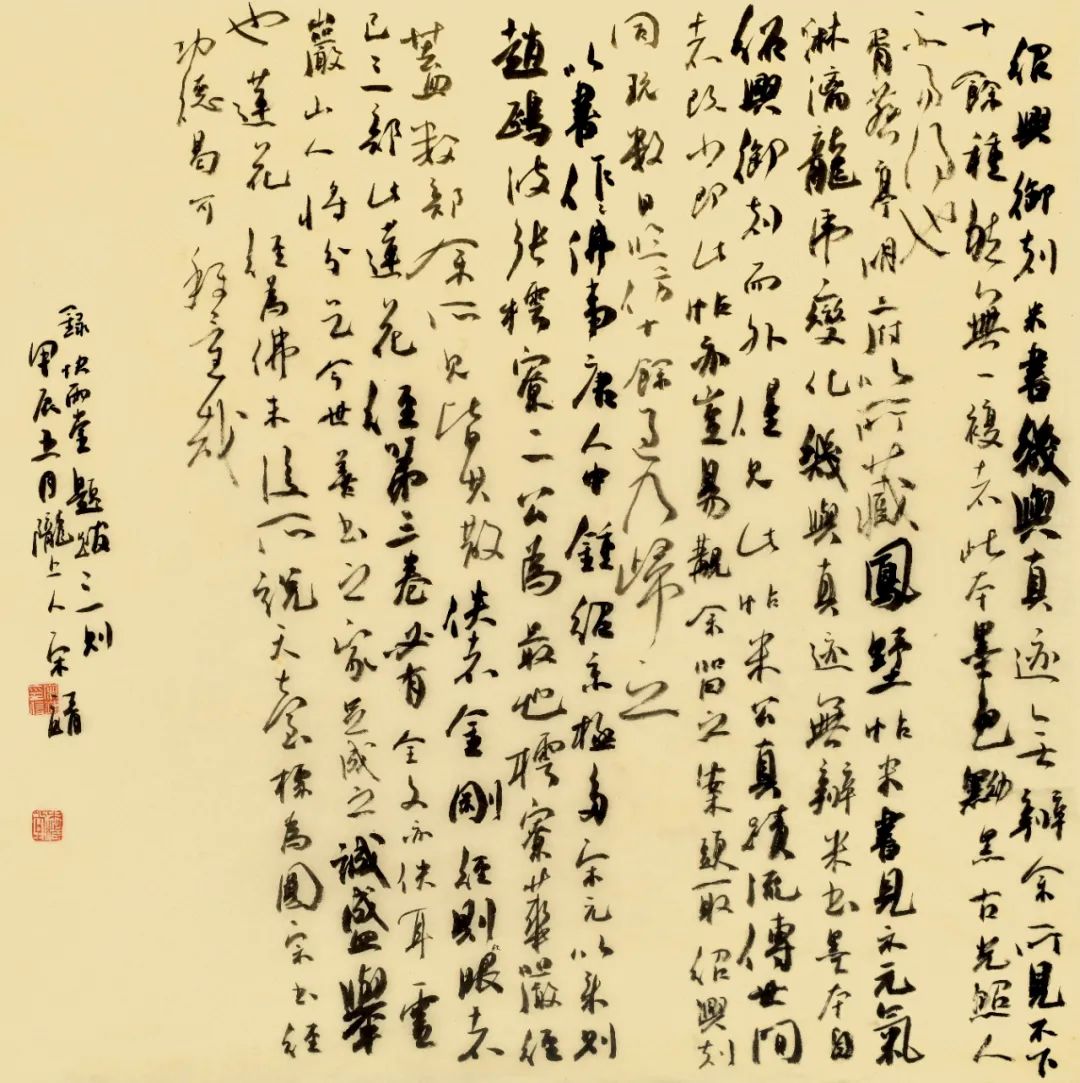 紹興御刻米書幾與真迹無辨余所見不下
十餘種然無一複者此本墨色黝黑古光照人
不易得也
胥燕亭明府以所藏鳳墅帖米書見示元氣
淋漓龍虎變化幾與真迹無辨米書墨本自
紹興御刻而外僅見此帖米公真蹟流傳世間
者既少即此帖亦豈易覯余留之案頭取紹興刻
同玩數日臨仿十餘過乃歸之
以書作佛事唐人中鍾紹京極多宋元以來則
趙鷗波張樗寮二公為最也樗寮華嚴經
蓋數部余所見皆其散佚者金剛經則眼者
已三部此蓮花經第三卷必有全文亦佚耳靈
巖山人將分乞今世善書之家足成之誠盛舉
也蓮花經為佛末後所說天台標為圓宗書經
功德曷可稱量哉
録快雨堂題跋三則
甲辰五月隴上人宋靖